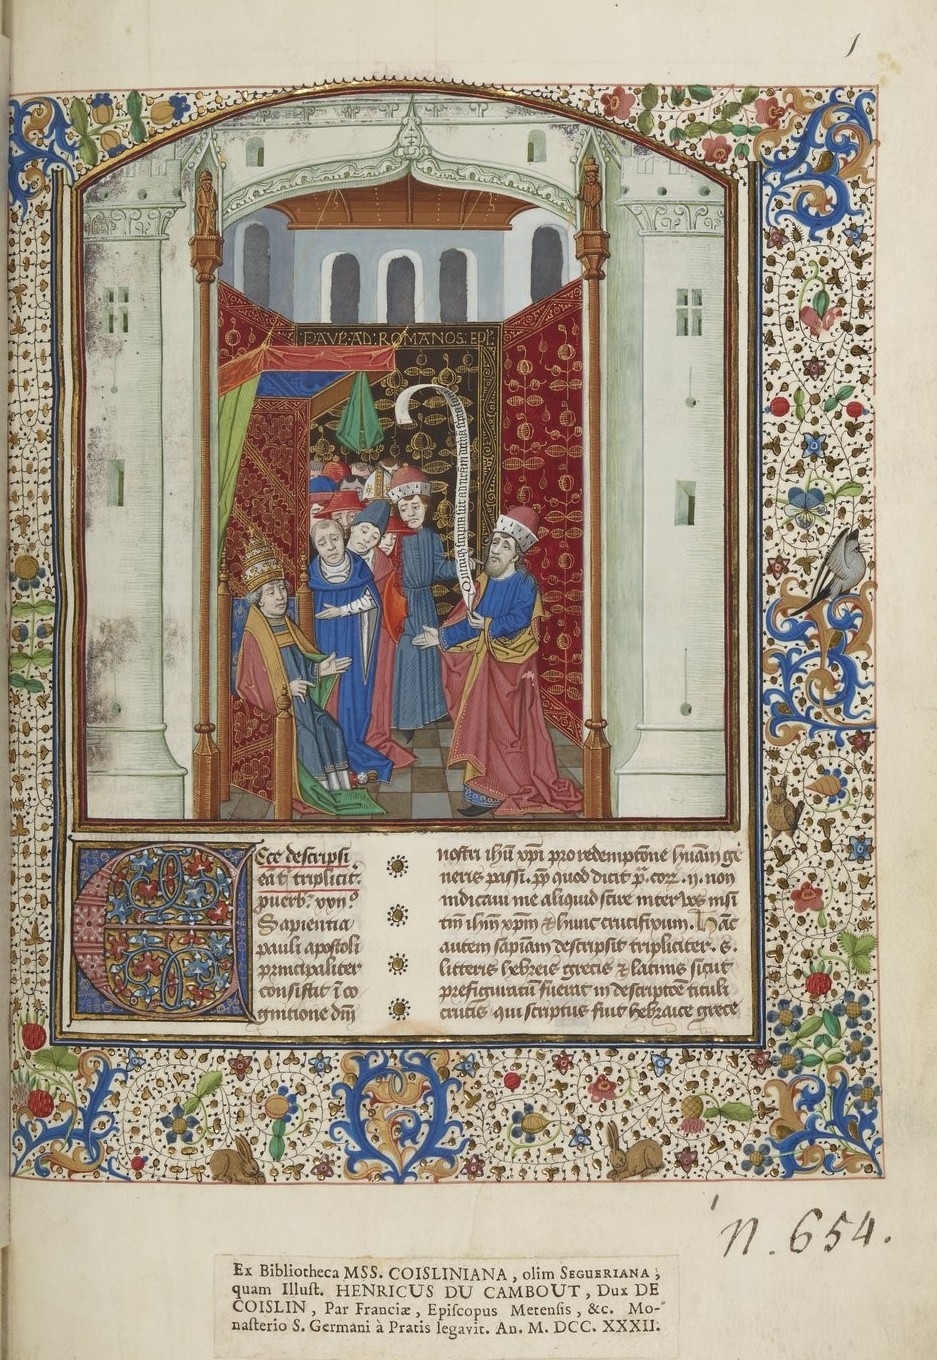 1
PAVL·AD·ROMANOS·EPL
Ecce descripsi
eā t̄ triplicit̄
puerb. xxıı°
Sapientia
pauli apostoli
principaliter
consistit ī co
gnitione dnī
nostri ihū xp̄i pro redemptōne hūaīn ge
neris passi. pp̄ quod dicit p̄. cor. ij. non
indicaui me aliquid scire inter vos nisi
tm̄ ihm̄ xp̄m ⁊ hunc crucifixum. Hāc
autem sapīam descripsit tripliciter. s.
litteris hebreis grecis ⁊ latinis sicut
prefiguratū fuerat in descriptōe tituli
crucis qui scriptus fuit hebraice grece
n. 654.
Ex Bibliotheca MSS. COISLINIANA, olim SEGUERIANA,
quam Illust. HENRICUS DU CAMBOUT, Dux DE
COISLIN, Par Franciæ, Episcopus Metensis, &c. Mo-
nasterio S. Germani à Pratis legavit. An. M. DCC. XXXII.